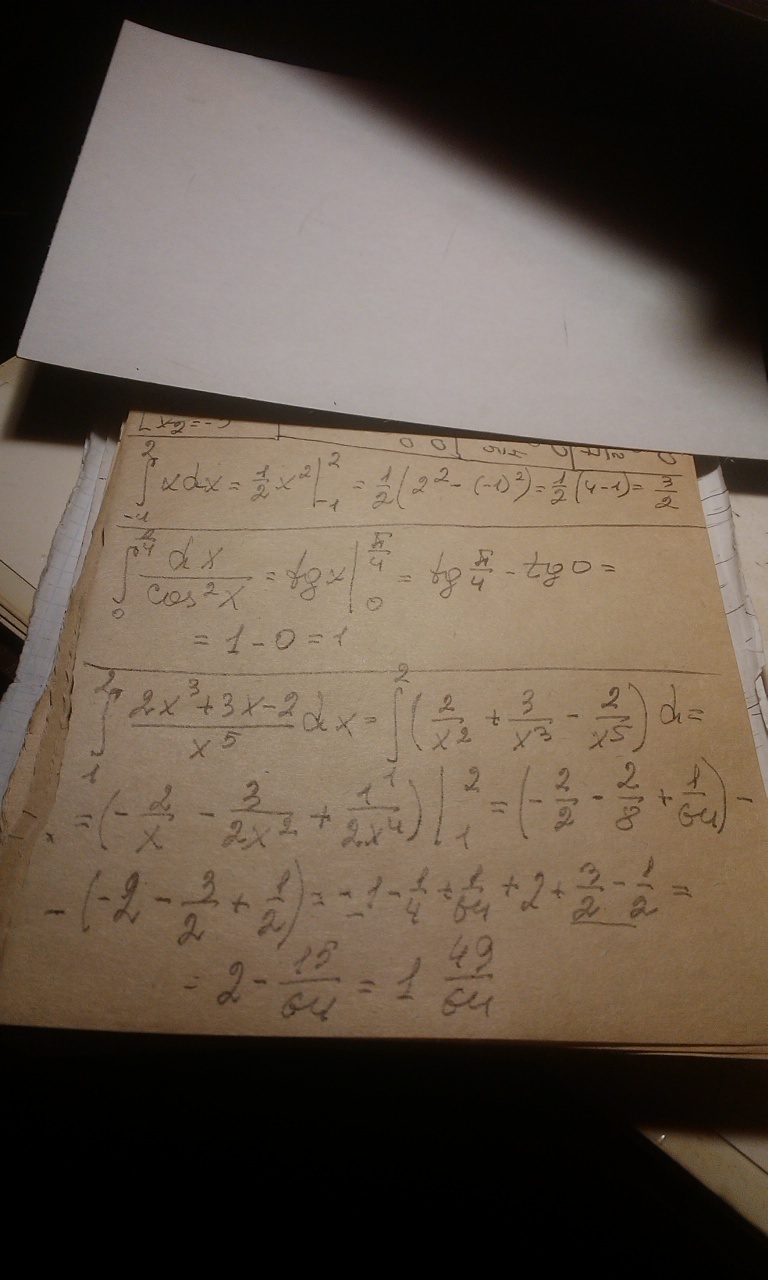 x2=-
∫₋₁² xdx = 1/2 x² |₋₁² = 1/2 (2² - (-1)²) = 1/2 (4-1) = 3/2
∫₀^(π/4) dx/cos²x = tg x |₀^(π/4) = tg π/4 - tg 0 =
= 1 - 0 = 1
∫₁² (2x³+3x-2)/x⁵ dx = ∫₁² (2/x² + 3/x³ - 2/x⁵) d =
= (-2/x - 3/2x² + 1/2x⁴) |₁² = (-2/2 - 2/8 + 1/64) -
- (-2 - 3/2 + 1/2) = -1 - 1/4 + 1/64 + 2 + 3/2 - 1/2 =
= 2 - 15/64 = 1 49/64